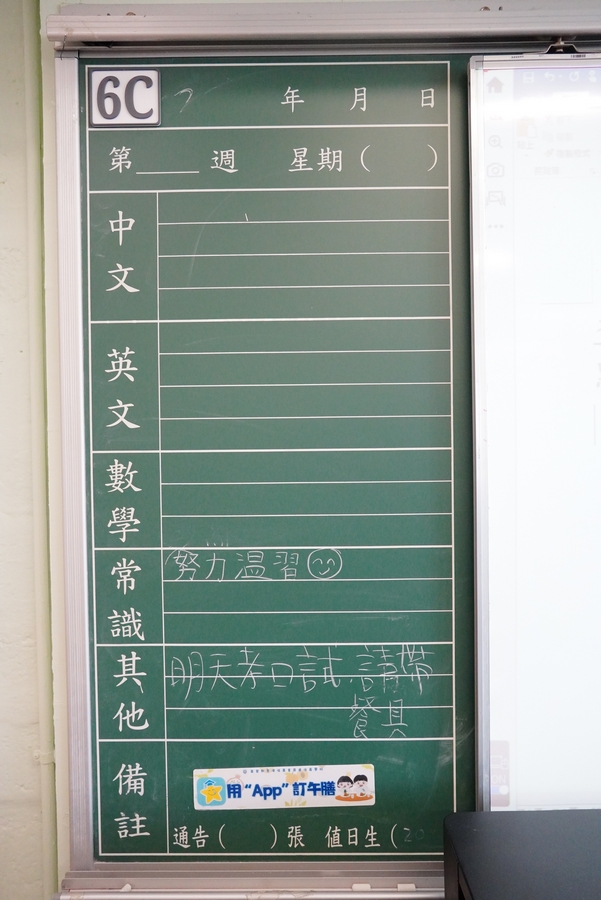 6C 年 月 日
第 週 星期( )
中文
英文
數學
常識
努力溫習
其他
明天考口試,請帶
餐具
備註
用“App”訂午膳
通告( )張 值日生(20